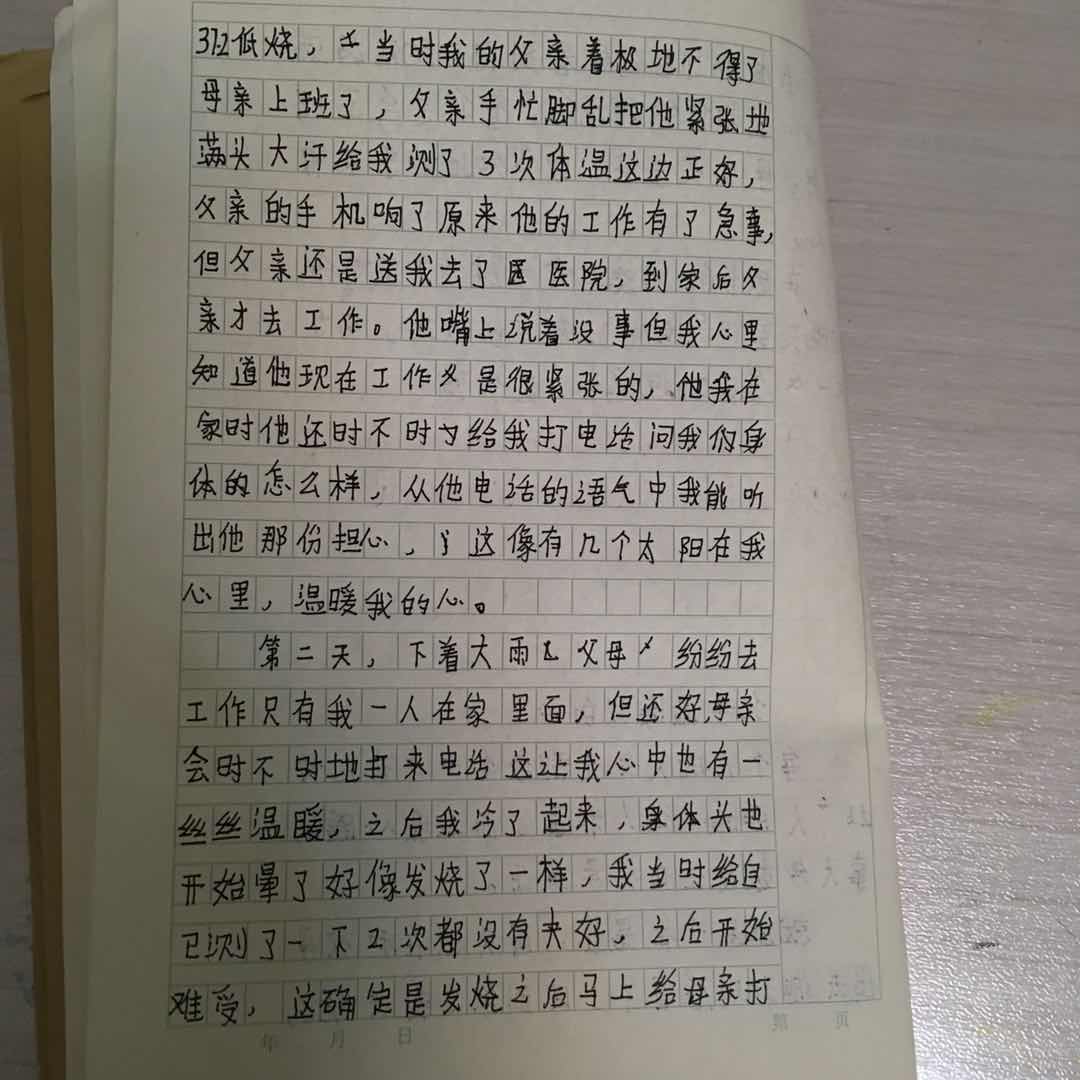 37.2低烧，当时我的父亲着极地不得了
母亲上班了，父亲手忙脚乱把他紧张地
满头大汗给我测了3次体温这边正好，
父亲的手机响了原来他的工作有了急事，
但父亲还是送我去了医院，到家后父
亲才去工作。他嘴上说着没事但我心里
知道他现在工作是很紧张的，他我在
家时他还时不时给我打电话问我的身
体的怎么样，从他电话的语气中我能听
出他那份担心，这像有几个太阳在我
心里，温暖我的心。
第二天，下着大雨父母纷纷去
工作只有我一人在家里面，但还好，母亲
会时不时地打来电话这让我心中也有一
丝丝温暖，之后我冷了起来，身体头也
开始晕了好像发烧了一样，我当时给自
己测了一下2次都没有夹好，之后开始
难受，这确定是发烧之后马上给母亲打
年 月 日 第 页